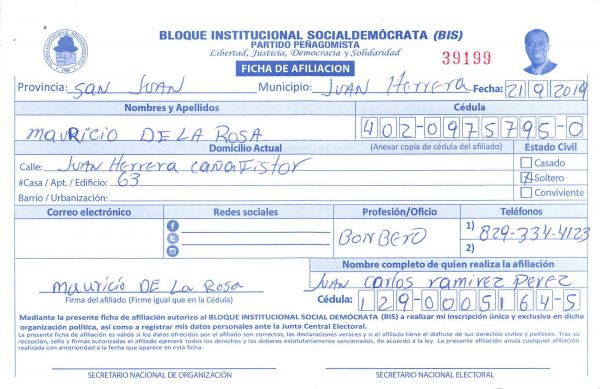 BLOQUE INSTITUCIONAL SOCIALDEMÓCRATA (BIS)
PARTIDO PEÑAGOMISTA
Libertad, Justicia, Democracia y Solidaridad
39199
FICHA DE AFILIACION
Provincia: San Juan Municipio: Juan Herrera Fecha: 21/9/2019
Nombres y Apellidos Cédula
mauricio DE LA ROSA 402-0975795-0
Domicilio Actual (Anexar copia de cédula del afiliado) Estado Civil
Calle: Juan Herrera cañafistor Casado
#Casa / Apt. / Edificio: 63 Soltero
Barrio / Urbanización: Conviviente
Correo electrónico Redes sociales Profesión/Oficio Teléfonos
BONBERO 1) 829-334-4123
2)
Nombre completo de quien realiza la afiliación
mauricio DE La Rosa Juan carlos ramirez Perez
Firma del afiliado (Firme igual que en la Cédula) Cédula: 129-0005164-5
Mediante la presente ficha de afiliación autorizo al BLOQUE INSTITUCIONAL SOCIAL DEMÓCRATA (BIS) a realizar mi inscripción única y exclusiva en dicha
organización política, así como a registrar mis datos personales ante la Junta Central Electoral.
La presente ficha de afiliación es válida si los datos ofrecidos por el afiliado son correctos, las declaraciones veraces y si el afiliado tiene el disfrute de sus derechos civiles y políticos. Tras su
recepción, sello y firmas autorizadas el afiliado ejercerá todos los derechos y los deberes estatutariamente sancionados, de acuerdo a la ley. La presente afiliación anula cualquier afiliación
realizada con anterioridad a la fecha que aparece en esta ficha.
SECRETARIO NACIONAL DE ORGANIZACIÓN SECRETARIO NACIONAL ELECTORAL